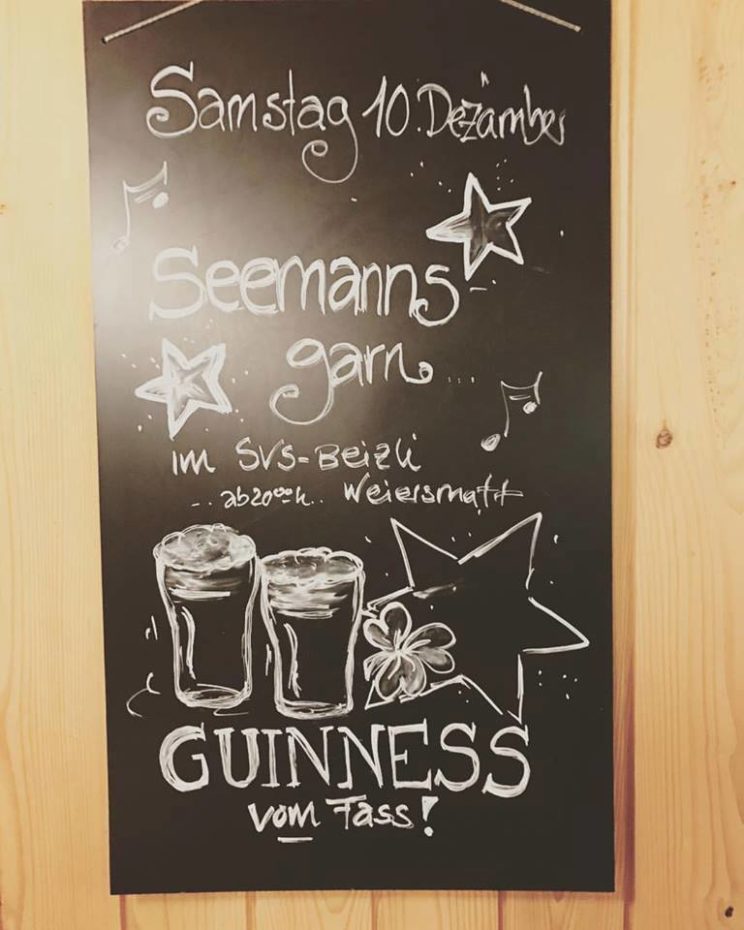 Samstag 10. Dezämber
Seemanns
garn...
im SVS-Beizli
...ab 20⁰⁰h.. Weiersmatt
GUINNESS
vom Fass!